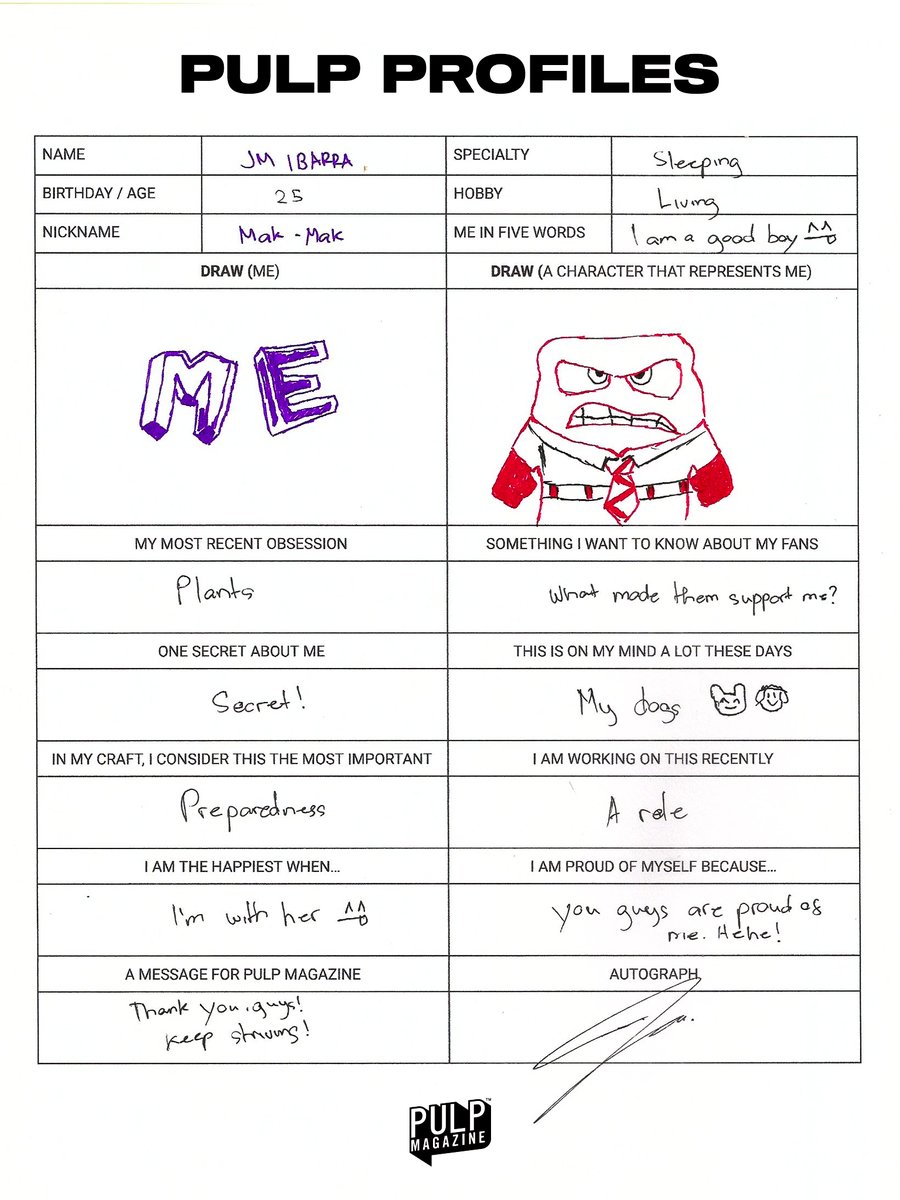 PULP PROFILES
NAME
JM IBARRA.
SPECIALTY
Sleeping
BIRTHDAY / AGE
25
HOBBY
Living
NICKNAME
Mak - Mak
ME IN FIVE WORDS
I am a good boy
DRAW (ME)
DRAW (A CHARACTER THAT REPRESENTS ME)
ME
MY MOST RECENT OBSESSION
SOMETHING I WANT TO KNOW ABOUT MY FANS
Plants
What made them support me?
ONE SECRET ABOUT ME
THIS IS ON MY MIND A LOT THESE DAYS
Secret!
My dogs
IN MY CRAFT, I CONSIDER THIS THE MOST IMPORTANT
I AM WORKING ON THIS RECENTLY
Preparedness
A role
I AM THE HAPPIEST WHEN...
I AM PROUD OF MYSELF BECAUSE...
I'm with her
you guys are proud of
me. Hehe!
A MESSAGE FOR PULP MAGAZINE
AUTOGRAPH
Thank you, guys!
keep striving!
PULP™
MAGAZINE